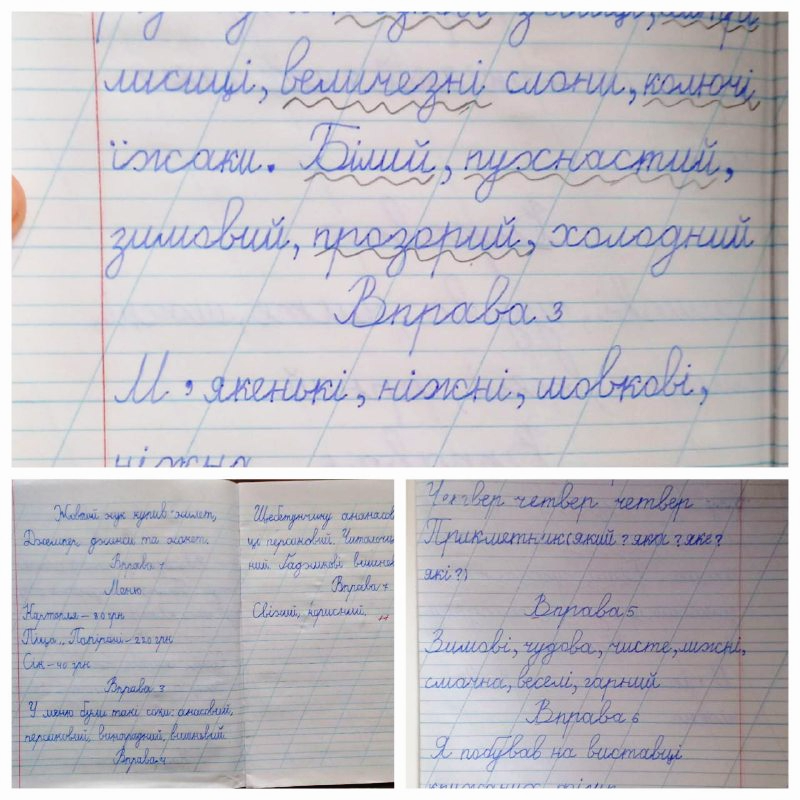 лисиці, величезні слони, колючі
їжаки. Білий, пухнастий,
зимовий, прозорий, холодний
Вправа 3
М'якенькі, ніжні, шовкові,
ніжна
Жовтий жук купив жилет,
Джемпер джинси та жакет.
Вправа 1
Меню
Картопля – 80 грн
Піца
Сік – 40 грн
Вправа 3
У меню були такі соки: анасовий,
персиковий, виноградний, вишневий.
Вправа 4
ананасов
це персиковий.
ний.
Вправа 7
Свіжий, корисний.
Четвер четвер четвер
Прикметник (який? яка? яке?
які?)
Вправа 5
Зимові, чудова, чисте, ніжні,
смачна, веселі, гарний
Вправа 6
Я побував на виставці